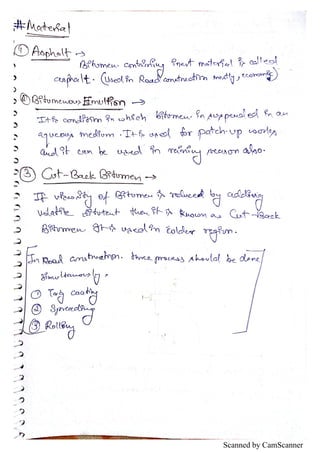 # Material
① Asphalt →
Bitumen containing inert material is called
asphalt. (Used in Road construction mostly, economic)
② Bitumenous Emultion →
It is condition in which bitumen in suspended in an
aqueous medium. It is used for patch-up works
and it can be used in raining season also.
③ Cut-Back Bitumen →
If viscosity of Bitumen is reduced by adding
volatile dilutent then it is known as Cut-Back
Bitumen It is used in colder region.
In Road construction. three process should be done
simultaneously.
① Tack coating
② Spreading
③ Rolling
Scanned by CamScanner